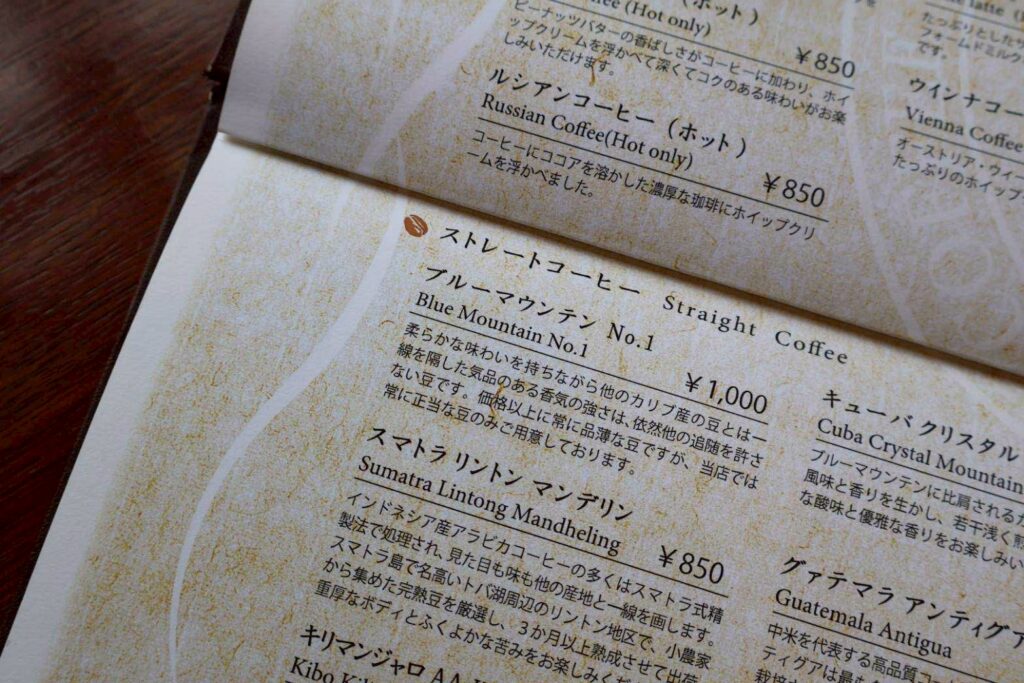 （ホット）
ee (Hot only)
¥850
ピーナッツバターの香ばしさがコーヒーに加わり、ホイ
ップクリームを浮かべて深くてコクのある味わいがお楽
しみいただけます。
ルシアンコーヒー（ホット）
Russian Coffee(Hot only)
¥850
コーヒーにココアを溶かした濃厚な珈琲にホイップクリ
ームを浮かべました。
latte
たっぷりとした
フォームドミルク
です。
ウインナコー
Vienna Coffee
オーストリア・ウィー
たっぷりのホイップ
ストレートコーヒー Straight Coffee
ブルーマウンテン No.1
Blue Mountain No.1
¥1,000
柔らかな味わいを持ちながら他のカリブ産の豆とは一
線を隔した気品のある香気の強さは、依然他の追随を許さ
ない豆です。価格以上に常に品薄な豆ですが、当店では
常に正当な豆のみご用意しております。
スマトラ リントン マンデリン
Sumatra Lintong Mandheling
¥850
インドネシア産アラビカコーヒーの多くはスマトラ式精
製法で処理され、見た目も味も他の産地と一線を画します。
スマトラ島で名高いトバ湖周辺のリントン地区で、小農家
から集めた完熟豆を厳選し、3か月以上熟成させて出荷
重厚なボディとふくよかな苦みをお楽しみくだ
キリマンジャロ AA
Kibo
キューバ クリスタル
Cuba Crystal Mountain
ブルーマウンテンに比肩される
風味と香りを生かし、若干浅く煎
な酸味と優雅な香りをお楽しみい
グァテマラ アンティグア
Guatemala Antigua
中米を代表する高品質コー
ティグアは最も
栽培